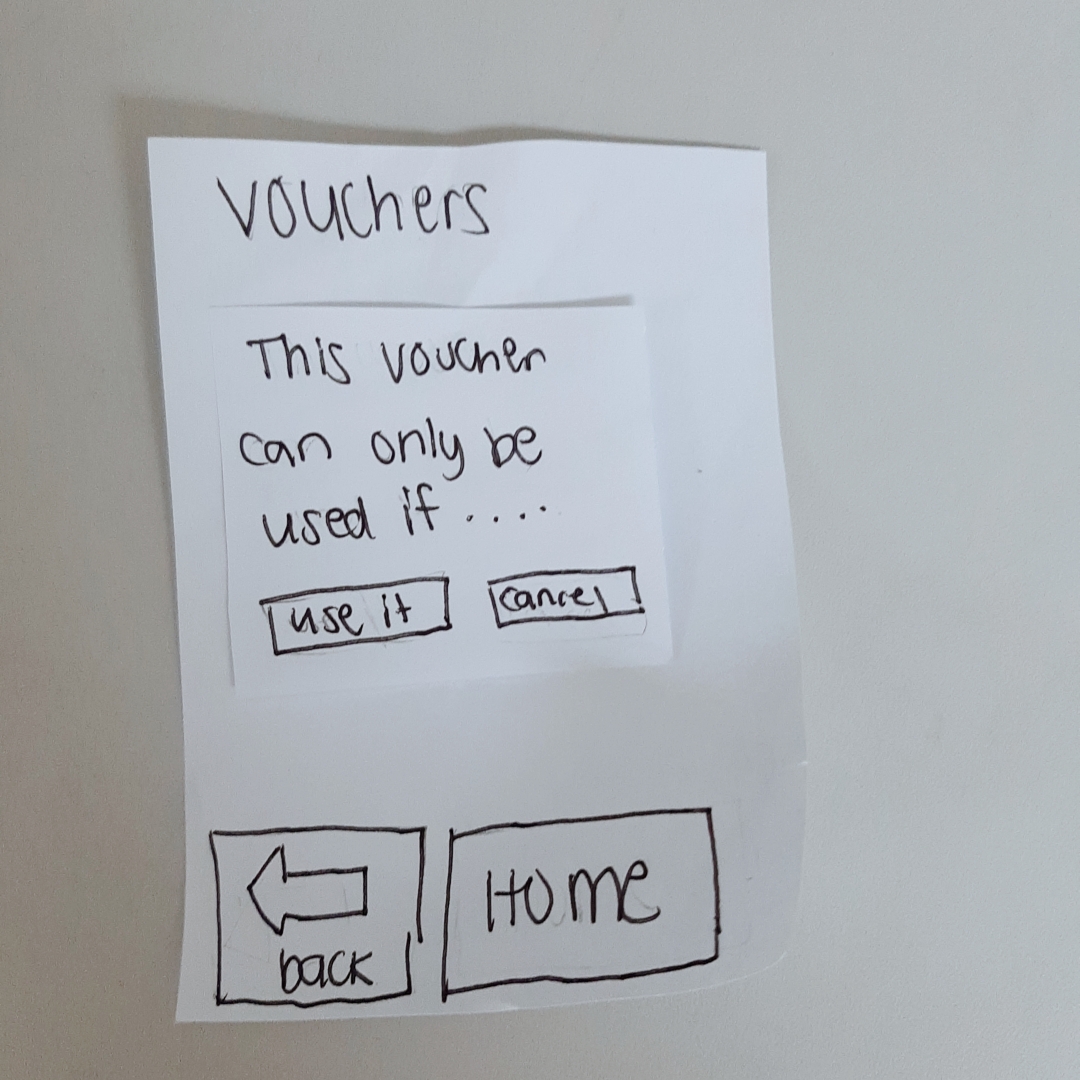 Vouchers
This voucher
can only be
used if ....
use it
cancel
back
Home